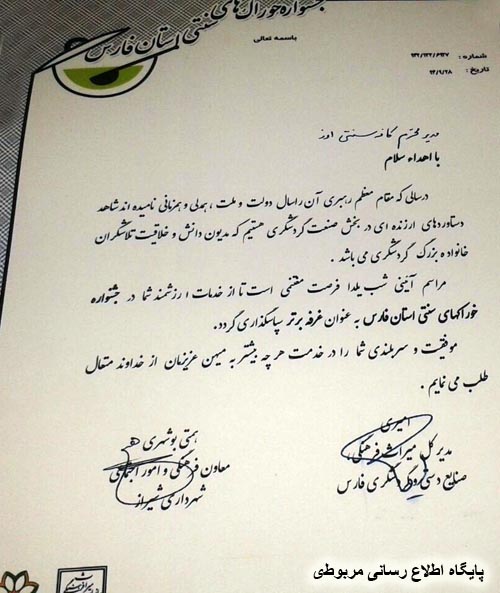 جشنواره خوراک‌های
سنتی استان فارس
باسمه تعالی
شماره :
تاریخ : ۹۴/۹/۲۸
مدیر محترم کافه سنتی اوز
با اهداء سلام
درسالی که مقام معظم رهبری آن را سال دولت و ملت ، همدلی و همزبانی نامیده اند شاهد
دستاوردهای ارزنده ای در بخش صنعت گردشگری هستیم که مدیون دانش و خلاقیت تلاشگران
خانواده بزرگ گردشگری می باشد .
مراسم آئینی شب یلدا فرصت مغتنمی است تا از خدمات ارزشمند شما در جشنواره
خوراکهای سنتی استان فارس به عنوان غرفه برتر سپاسگذاری گردد.
موفقیت و سربلندی شما را در خدمت هر چه بیشتر به میهن عزیزمان از خداوند متعال
طلب می نمایم .
امیری
مدیر کل میراث فرهنگی،
صنایع دستی و گردشگری فارس
همتی بوشهری
معاون فرهنگی و امور اجتماعی
شهرداری شیراز
پایگاه اطلاع رسانی مربوطی